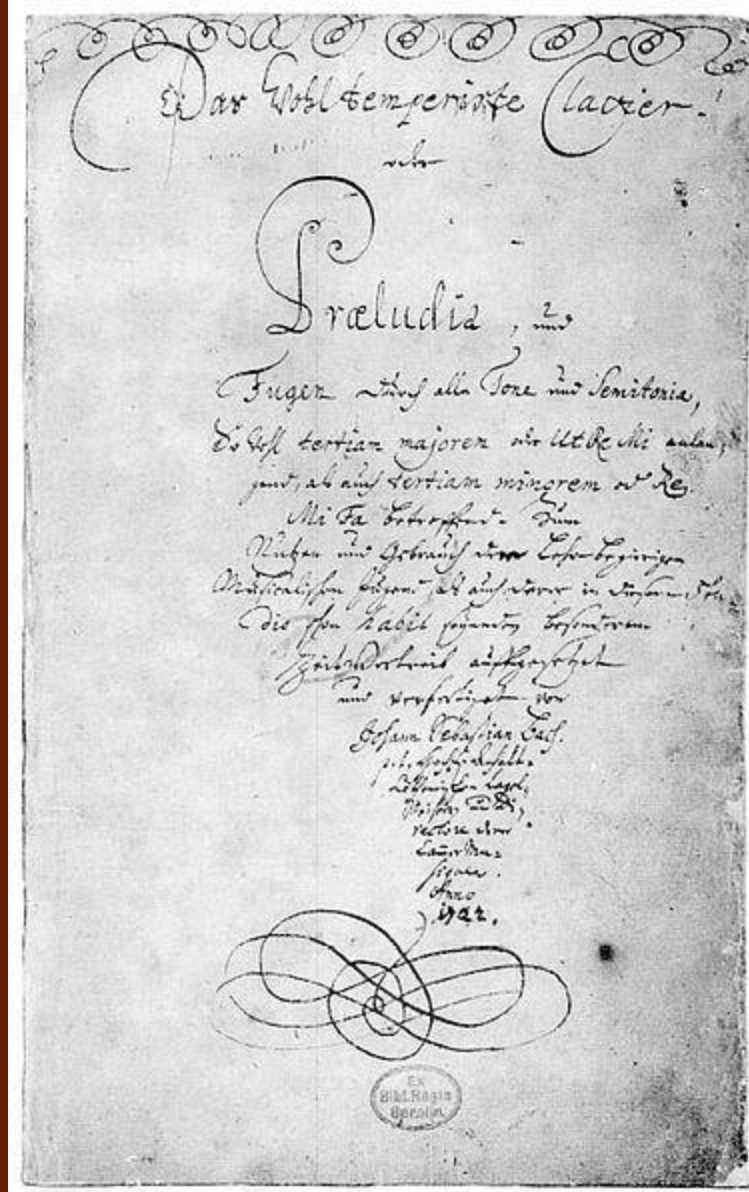 Das Wohltemperirte Clavier.
oder
Præludia, und
Fugen durch alle Tone und Semitonia,
So wohl tertiam majorem oder Ut Re Mi anlan-
gend, als auch tertiam minorem oder Re
Mi Fa betreffend. Zum
Nutzen und Gebrauch der Lehr-begierigen
Musicalischen Jugend, als auch derer in diesem stu-
dio schon habil seyenden besonderem
Zeitvertreib auffgesetzet
und verfertiget von
Johann Sebastian Bach.
p. t. Hochfürstl.
Capel-
Meistern und Di-
rectore derer
Cammer Mu-
siquen.
Anno
1722.
Ex
Bibl. Regia
Berolin.